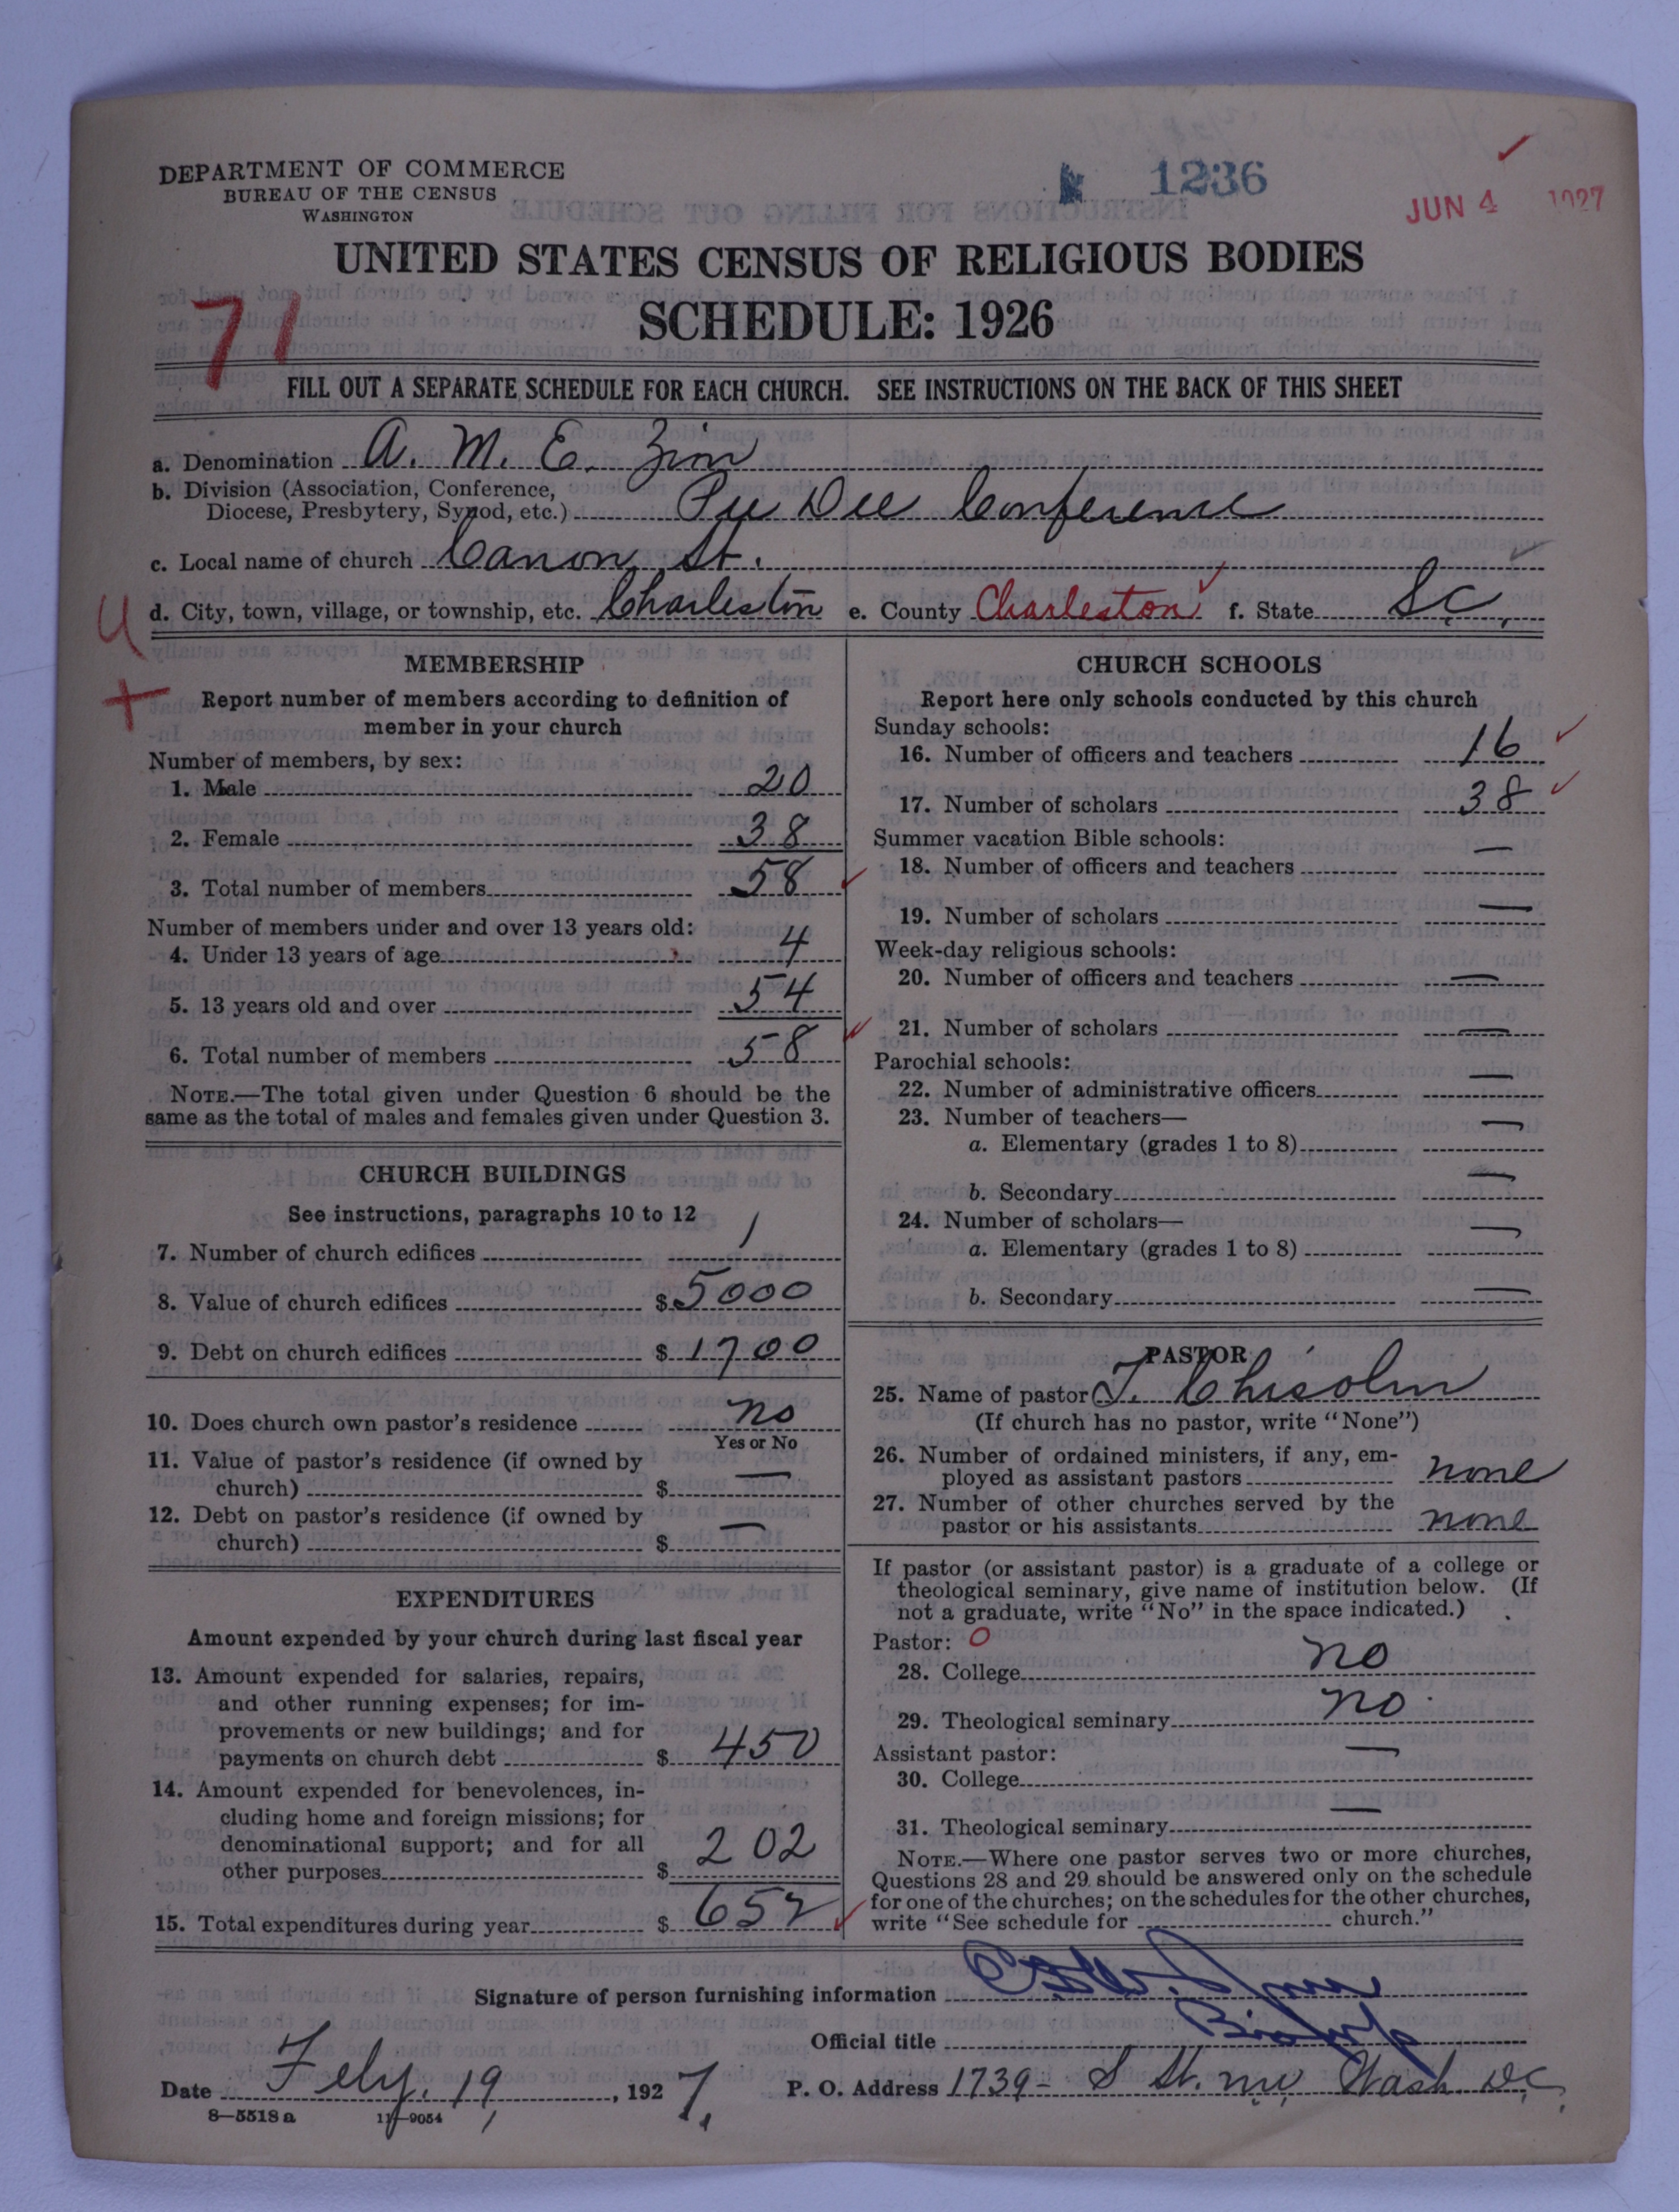 1236
JUN 4 1927
DEPARTMENT OF COMMERCE
BUREAU OF THE CENSUS
WASHINGTON
UNITED STATES CENSUS OF RELIGIOUS BODIES
SCHEDULE: 1926
71
FILL OUT A SEPARATE SCHEDULE FOR EACH CHURCH. SEE INSTRUCTIONS ON THE BACK OF THIS SHEET
a. Denomination A. M. E. Zion
b. Division (Association, Conference,
Diocese, Presbytery, Synod, etc.) Pee Dee Conference
c. Local name of church Canon St.
d. City, town, village, or township, etc. Charleston e. County Charleston f. State S.C.
MEMBERSHIP
Report number of members according to definition of
member in your church
Number of members, by sex:
1. Male 20
2. Female 38
3. Total number of members 58
Number of members under and over 13 years old:
4. Under 13 years of age 4
5. 13 years old and over 54
6. Total number of members 58
NOTE.—The total given under Question 6 should be the
same as the total of males and females given under Question 3.
CHURCH BUILDINGS
See instructions, paragraphs 10 to 12
7. Number of church edifices 1
8. Value of church edifices $ 5000
9. Debt on church edifices $ 1700
10. Does church own pastor's residence no
Yes or No
11. Value of pastor's residence (if owned by
church) $ —
12. Debt on pastor's residence (if owned by
church) $ —
EXPENDITURES
Amount expended by your church during last fiscal year
13. Amount expended for salaries, repairs,
and other running expenses; for im-
provements or new buildings; and for
payments on church debt $ 450
14. Amount expended for benevolences, in-
cluding home and foreign missions; for
denominational support; and for all
other purposes $ 202
15. Total expenditures during year $ 652
CHURCH SCHOOLS
Report here only schools conducted by this church
Sunday schools:
16. Number of officers and teachers 16
17. Number of scholars 38
Summer vacation Bible schools:
18. Number of officers and teachers —
19. Number of scholars —
Week-day religious schools:
20. Number of officers and teachers —
21. Number of scholars —
Parochial schools:
22. Number of administrative officers —
23. Number of teachers—
a. Elementary (grades 1 to 8) —
b. Secondary —
24. Number of scholars—
a. Elementary (grades 1 to 8) —
b. Secondary —
PASTOR
25. Name of pastor J. Chisolm
(If church has no pastor, write "None")
26. Number of ordained ministers, if any, em-
ployed as assistant pastors none
27. Number of other churches served by the
pastor or his assistants none
If pastor (or assistant pastor) is a graduate of a college or
theological seminary, give name of institution below. (If
not a graduate, write "No" in the space indicated.)
Pastor: O
28. College no
29. Theological seminary no
Assistant pastor:
30. College —
31. Theological seminary —
NOTE.—Where one pastor serves two or more churches,
Questions 28 and 29 should be answered only on the schedule
for one of the churches; on the schedules for the other churches,
write "See schedule for church."
Signature of person furnishing information
Official title Bishop
Date Feby. 19, 1927. P. O. Address 1739- S St. NW Wash D.C.
8—5518 a 11—9054